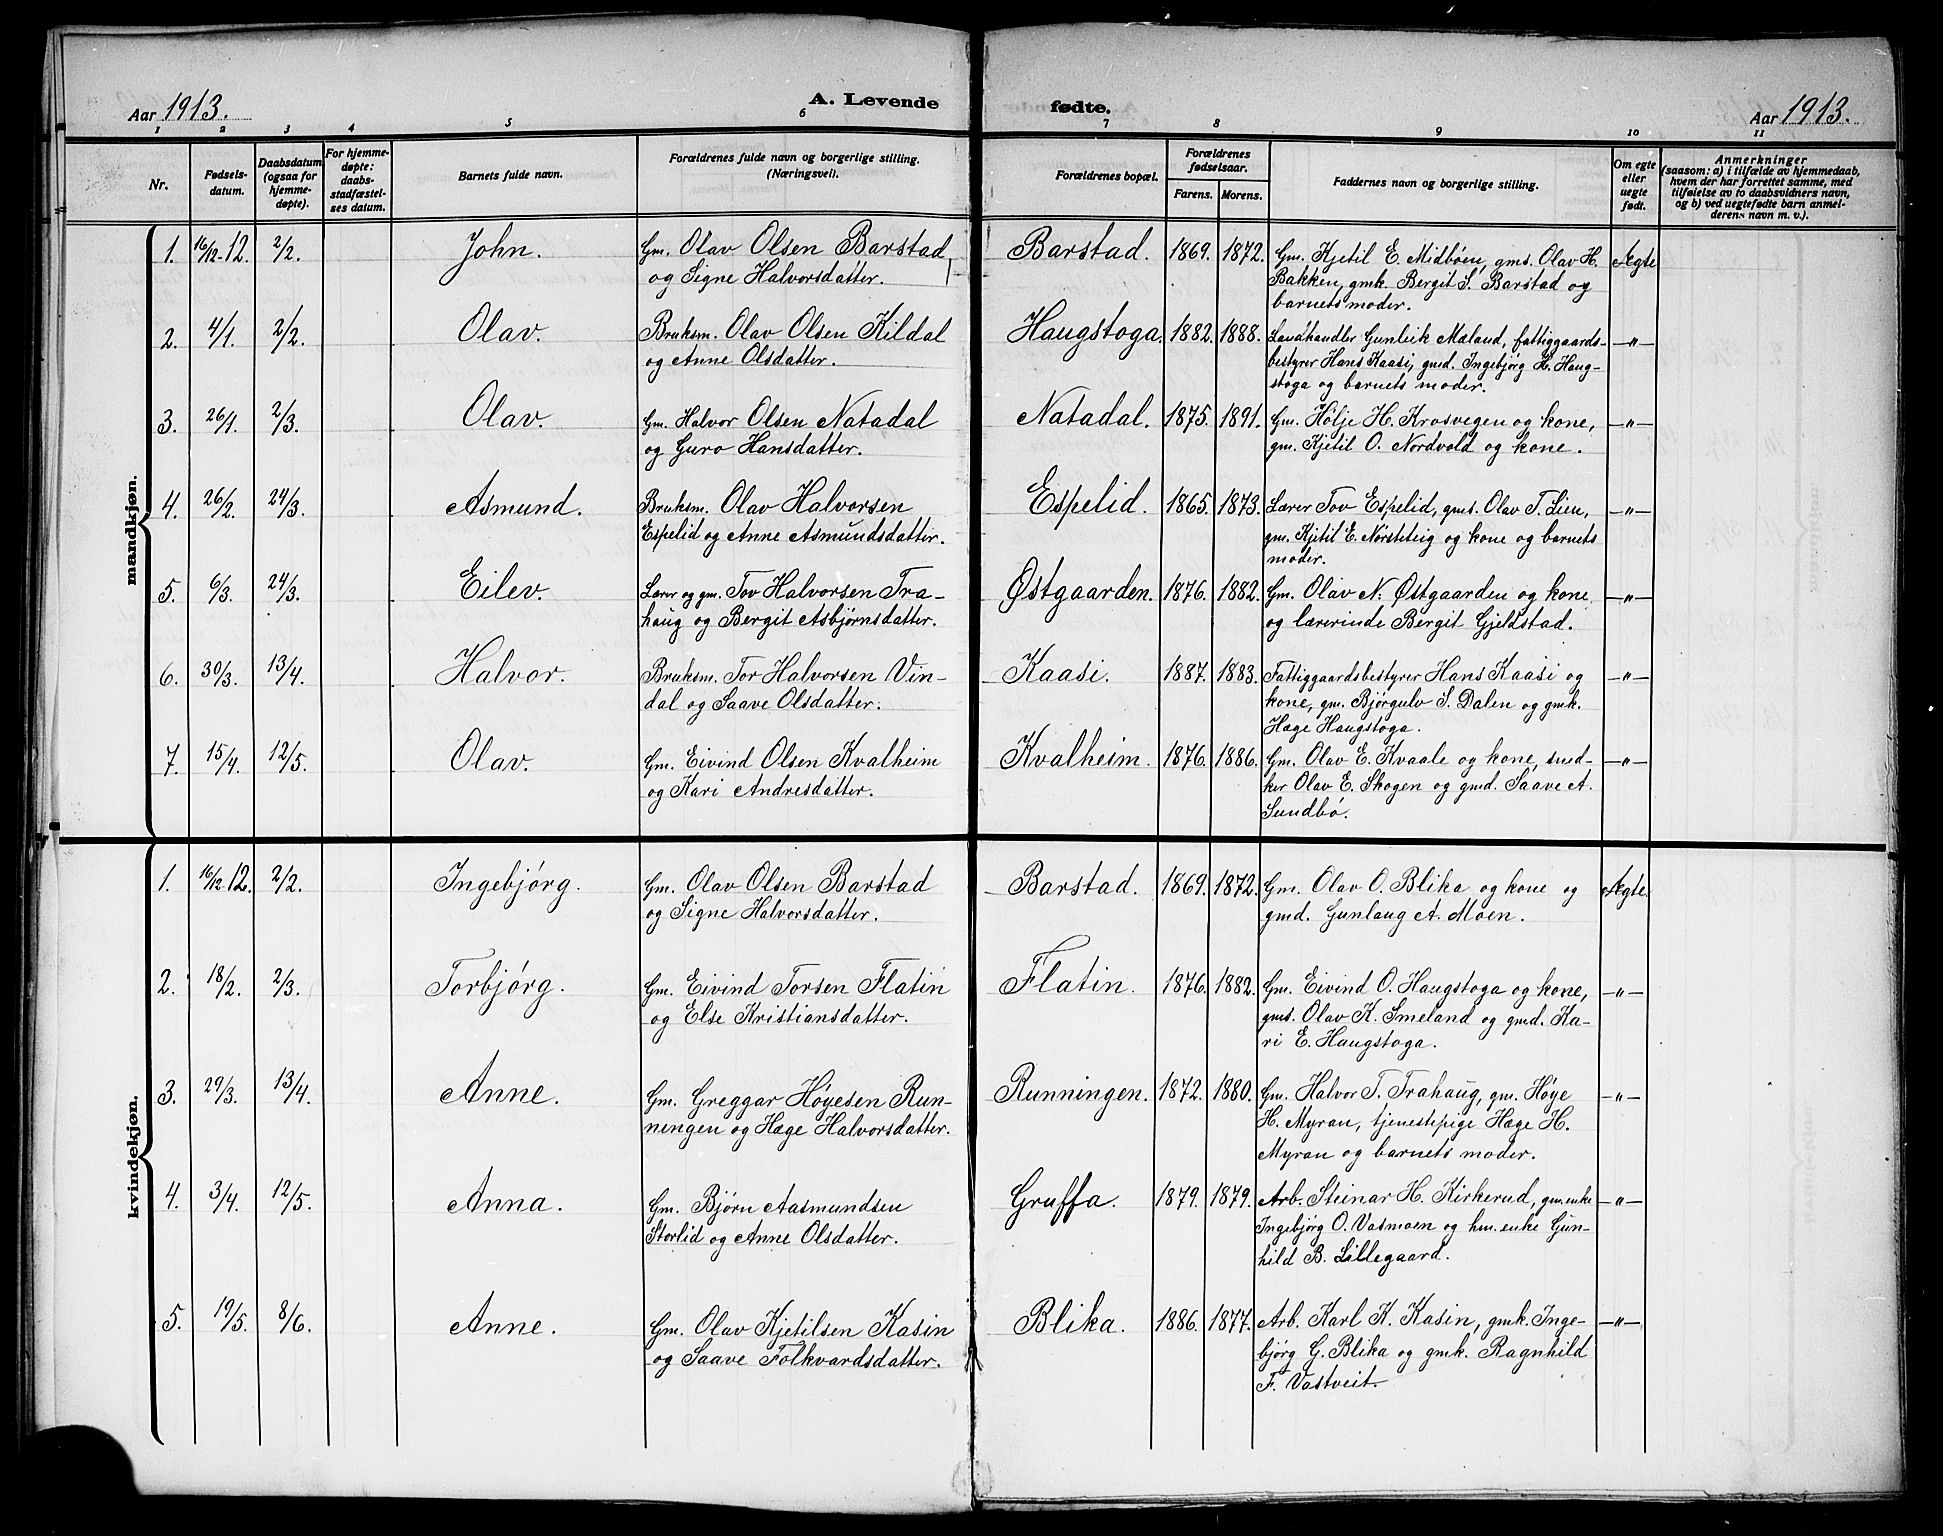 Aar 1913.
A. Levende fødte.
Aar 1913.
1 2 3 4 5 6 7 8 9 10 11
Nr.
Fødsels-
datum.
Daabsdatum
(ogsaa for
hjemme-
døpte).
For hjemme-
døpte:
daabs-
stadfæstel-
ses datum.
Barnets fulde navn.
Forældrenes fulde navn og borgerlige stilling.
(Næringsvei).
Forældrenes bopæl.
Forældrenes
fødselsaar.
Farens. Morens.
Faddernes navn og borgerlige stilling.
Om egte
eller
uegte
født.
Anmerkninger
(saasom: a) i tilfælde av hjemmedaab,
hvem der har forrettet samme, med
tilføielse av to daabsvidners navn,
og b) ved uegtefødte barn anmel-
derens navn m. v.).
mandkjøn.
1. 16/12-12. 2/2. John. Gm. Olav Olsen Barstad Barstad. 1869. 1872. Gm. Kjetil E. Midbøen, gms. Olav H. Ægte
og Signe Halvorsdatter. Bakken, gmk. Bergit S. Barstad og
barnets moder.
2. 4/1. 2/2. Olav. Bruksm. Olav Olsen Kildal Haugstoga. 1882. 1888. Landhandler Gunleik Maland, fattiggaards- —"—
og Anne Olsdatter. bestyrer Hans Kaasi, gmd. Ingebjørg H. Haug-
stoga og barnets moder.
3. 26/1. 2/3. Olav. Gm. Halvor Olsen Natadal Natadal. 1875. 1891. Gm. Hølje H. Krosvegen og kone, —"—
og Guro Hansdatter. gm. Kjetil O. Nordvold og kone.
4. 26/2. 24/3. Asmund. Bruksm. Olav Halvorsen Espelid. 1865. 1873. Lærer Tov Espelid, gms. Olav T. Lien, —"—
Espelid og Anne Asmundsdatter. gm. Kjetil E. Nørsteteig og kone og barnets
moder.
5. 6/3. 24/3. Eilev. Lærer og gm. Tov Halvorsen Tra- Østgaarden. 1876. 1882. Gm. Olav N. Østgaarden og kone —"—
haug og Bergit Asbjørnsdatter. og lærerinde Bergit Gjeldstad.
6. 30/3. 13/4. Halvor. Bruksm. Tor Halvorsen Vin- Kaasi. 1887. 1883. Fattiggaardsbestyrer Hans Kaasi og —"—
dal og Saave Olsdatter. kone, gm. Bjørgulv S. Dalen og gmk.
Hæge Haugstoga.
7. 15/4. 12/5. Olav. Gm. Eivind Olsen Kvalheim Kvalheim. 1876. 1886. Gm. Olav E. Kvaale og kone, sned- —"—
og Kari Andresdatter. ker Olav E. Skogen og gmd. Saave A.
Sundbø.
kvindekjøn.
1. 16/12-12. 2/2. Ingebjørg. Gm. Olav Olsen Barstad Barstad. 1869. 1872. Gm. Olav O. Blika og kone og Ægte
og Signe Halvorsdatter. gmd. Gunlaug A. Moen.
2. 18/2. 2/3. Torbjørg. Gm. Eivind Torsen Flatin Flatin. 1876. 1882. Gm. Eivind O. Haugstoga og kone, —"—
og Else Kristiansdatter. gms. Olav K. Smeland og gmd. Ka-
ri E. Haugstoga.
3. 29/3. 13/4. Anne. Gm. Greggar Høyesen Run- Runningen. 1872. 1880. Gm. Halvor T. Trahaug, gm. Høye —"—
ningen og Hæge Halvorsdatter. H. Myran, tjenestepige Hæge H.
Myran og barnets moder.
4. 3/4. 12/5. Anna. Gm. Bjørn Aasmundsen Gruffa. 1879. 1879. Arb. Steinar H. Kirkerud, gm.enke —"—
Storlid og Anne Olsdatter. Ingebjørg O. Vasmoen og hm. enke Gun-
hild B. Lillegaard.
5. 19/5. 8/6. Anne. Gm. Olav Kjetilsen Kasin Blika. 1886. 1877. Arb. Karl K. Kasin, gmk. Inge- —"—
og Saave Folkvardsdatter. bjørg G. Blika og gmk. Ragnhild
F. Vastveit.